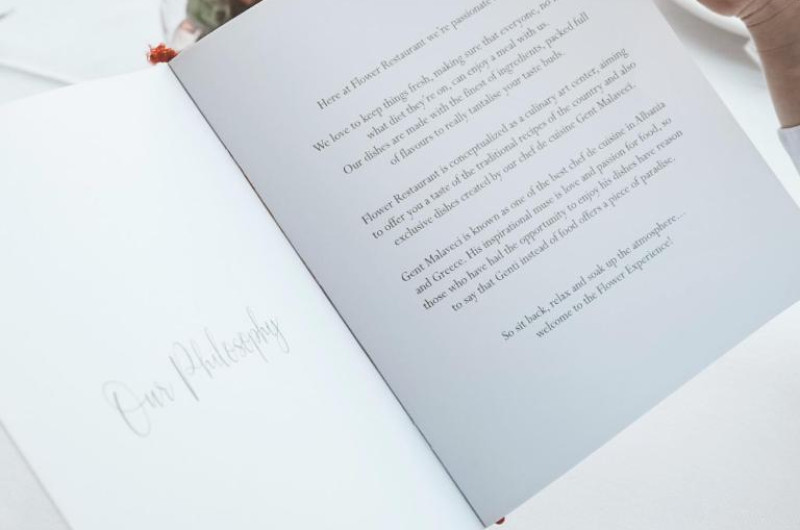 Our Philosophy
Here at Flower Restaurant we're passionate
We love to keep things fresh, making sure that everyone, no
what diet they're on, can enjoy a meal with us.
Our dishes are made with the finest of ingredients, packed full
of flavours to really tantalise your taste buds.
Flower Restaurant is conceptualized as a culinary art center, aiming
to offer you a taste of the traditional recipes of the country and also
exclusive dishes created by our chef de cuisine Gent Malaveci.
Gent Malaveci is known as one of the best chef de cuisine in Albania
and Greece. His inspirational muse is love and passion for food, so
those who have had the opportunity to enjoy his dishes have reason
to say that Genti instead of food offers a piece of paradise.
So sit back, relax and soak up the atmosphere...
welcome to the Flower Experience!